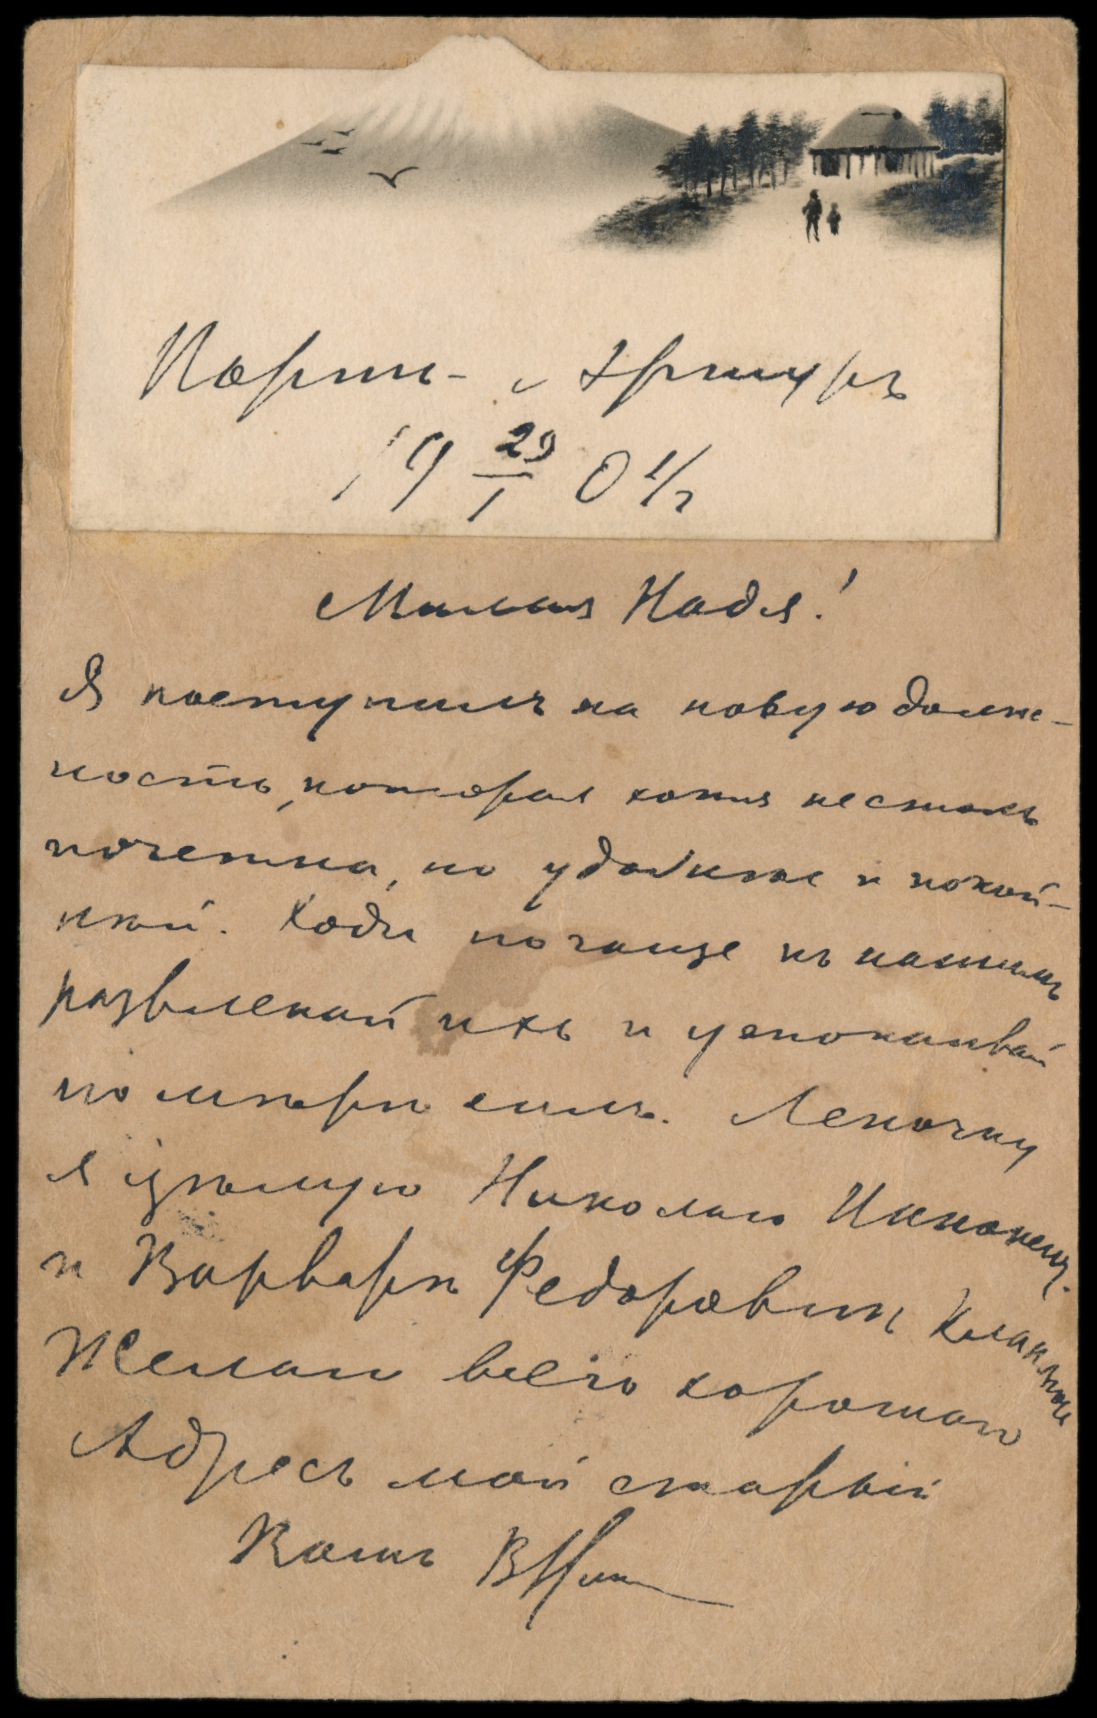 Портъ-Артуръ
19 29/1 04 г
Милая Надя!
Я поступилъ на новую долж-
ность, которая хотя не столь
почетна, но удобнѣе и покой-
нѣй. Ходи почаще къ нашимъ
развлекай ихъ и успокаивай
по мѣрѣ силъ. Леночку
я цѣлую Николаю
и Варварѣ Федоровнѣ кланяюсь
Желаю всего хорошаго
Адресъ мой старый
Вашъ